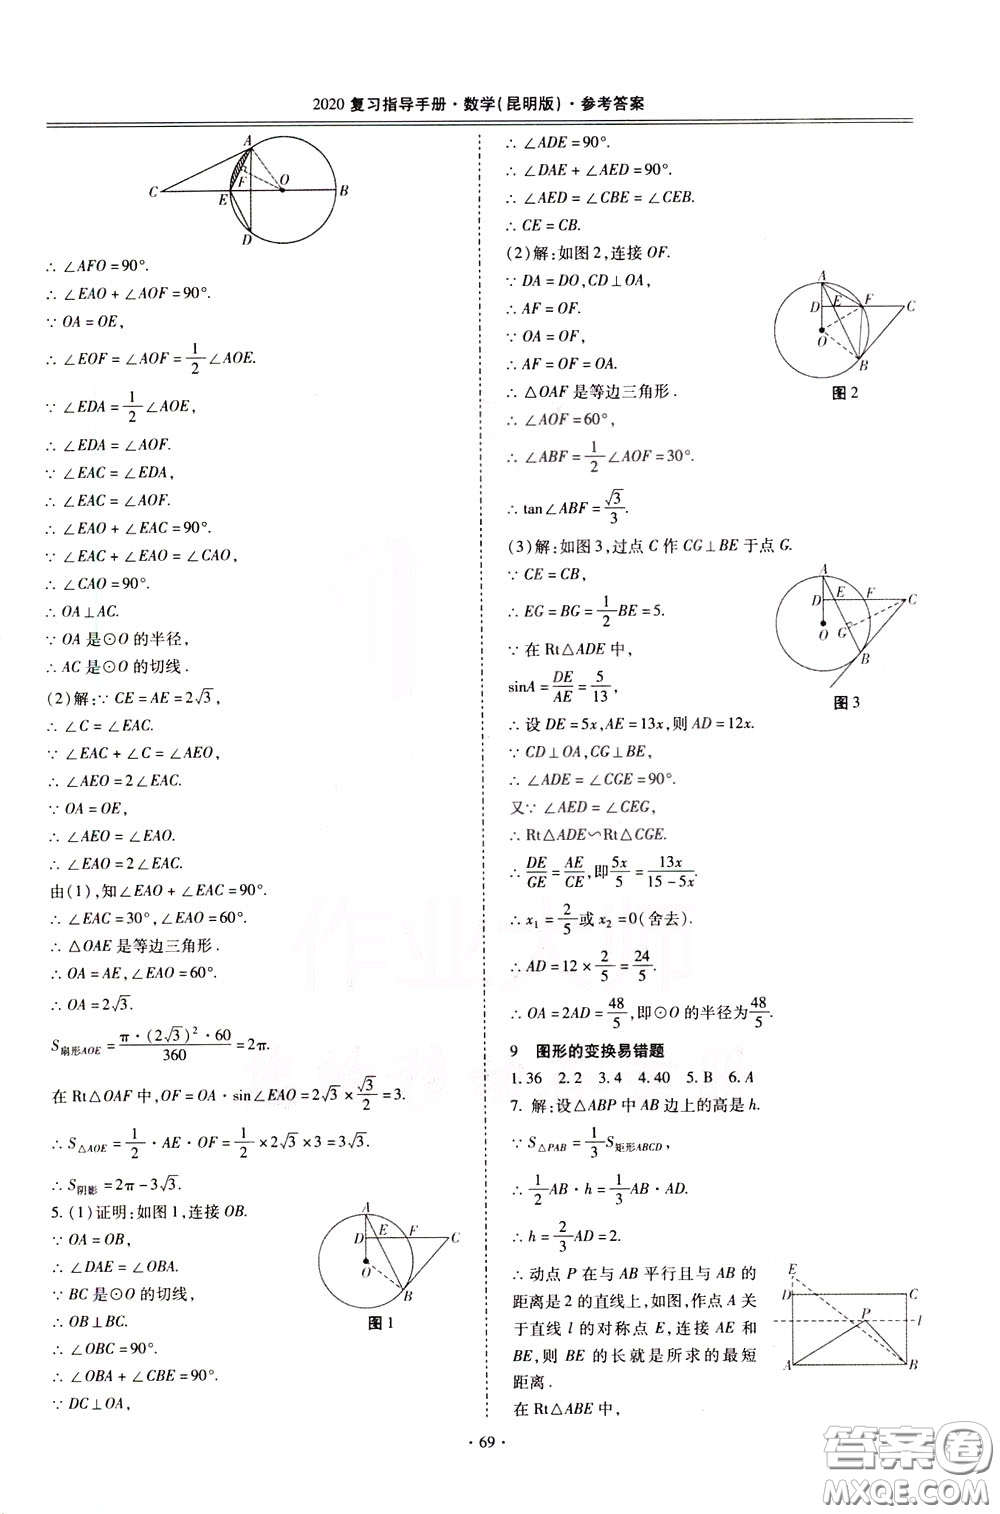 2020 复习指导手册·数学(昆明版)·参考答案
A
C
E
F
O
B
D
∴ ∠AFO = 90°.
∴ ∠EAO + ∠AOF = 90°.
∵ OA = OE,
∴ ∠EOF = ∠AOF = 1/2 ∠AOE.
∵ ∠EDA = 1/2 ∠AOE,
∴ ∠EDA = ∠AOF.
∵ ∠EAC = ∠EDA,
∴ ∠EAC = ∠AOF.
∴ ∠EAO + ∠EAC = 90°.
∵ ∠EAC + ∠EAO = ∠CAO,
∴ ∠CAO = 90°.
∴ OA⊥AC.
∵ OA 是⊙O 的半径,
∴ AC 是⊙O 的切线.
(2)解:∵ CE = AE = 2√3,
∴ ∠C = ∠EAC.
∵ ∠EAC + ∠C = ∠AEO,
∴ ∠AEO = 2∠EAC.
∵ OA = OE,
∴ ∠AEO = ∠EAO.
∴ ∠EAO = 2∠EAC.
由(1),知∠EAO + ∠EAC = 90°.
∴ ∠EAC = 30°,∠EAO = 60°.
∴ △OAE 是等边三角形.
∴ OA = AE,∠EAO = 60°.
∴ OA = 2√3.
S扇形AOE = π·(2√3)²·60/360 = 2π.
在 Rt△OAF 中,OF = OA·sin∠EAO = 2√3 × √3/2 = 3.
∴ S△AOE = 1/2·AE·OF = 1/2 × 2√3 × 3 = 3√3.
∴ S阴影 = 2π - 3√3.
5. (1)证明:如图 1,连接 OB.
∵ OA = OB,
∴ ∠DAE = ∠OBA.
∵ BC 是⊙O 的切线,
∴ OB⊥BC.
∴ ∠OBC = 90°.
∴ ∠OBA + ∠CBE = 90°.
∵ DC⊥OA,
A
D
E
F
C
O
B
图 1
∴ ∠ADE = 90°.
∴ ∠DAE + ∠AED = 90°.
∴ ∠AED = ∠CBE = ∠CEB.
∴ CE = CB.
(2)解:如图 2,连接 OF.
∵ DA = DO,CD⊥OA,
∴ AF = OF.
∵ OA = OF,
∴ AF = OF = OA.
∴ △OAF 是等边三角形.
∴ ∠AOF = 60°,
∴ ∠ABF = 1/2 ∠AOF = 30°.
∴ tan∠ABF = √3/3.
A
D
E
F
C
O
B
图 2
(3)解:如图 3,过点 C 作 CG⊥BE 于点 G.
∵ CE = CB,
∴ EG = BG = 1/2 BE = 5.
∵ 在 Rt△ADE 中,
sinA = DE/AE = 5/13,
∴ 设 DE = 5x,AE = 13x,则 AD = 12x.
∵ CD⊥OA,CG⊥BE,
∴ ∠ADE = ∠CGE = 90°.
又∵ ∠AED = ∠CEG,
∴ Rt△ADE∽Rt△CGE.
∴ DE/GE = AE/CE,即 5x/5 = 13x/(15 - 5x).
∴ x₁ = 2/5 或 x₂ = 0(舍去).
∴ AD = 12 × 2/5 = 24/5.
∴ OA = 2AD = 48/5,即⊙O 的半径为 48/5.
A
D
E
F
C
O
G
B
图 3
9 图形的变换易错题
1. 36 2. 2 3. 4 4. 40 5. B 6. A
7. 解:设△ABP 中 AB 边上的高是 h.
∵ S△PAB = 1/3 S矩形ABCD,
∴ 1/2 AB·h = 1/3 AB·AD.
∴ h = 2/3 AD = 2.
∴ 动点 P 在与 AB 平行且与 AB 的
距离是 2 的直线上,如图,作点 A 关
于直线 l 的对称点 E,连接 AE 和
BE,则 BE 的长就是所求的最短
距离.
在 Rt△ABE 中,
E
D
C
P
l
A
B
作业大师
·69·
答案圈
MXQE.COM